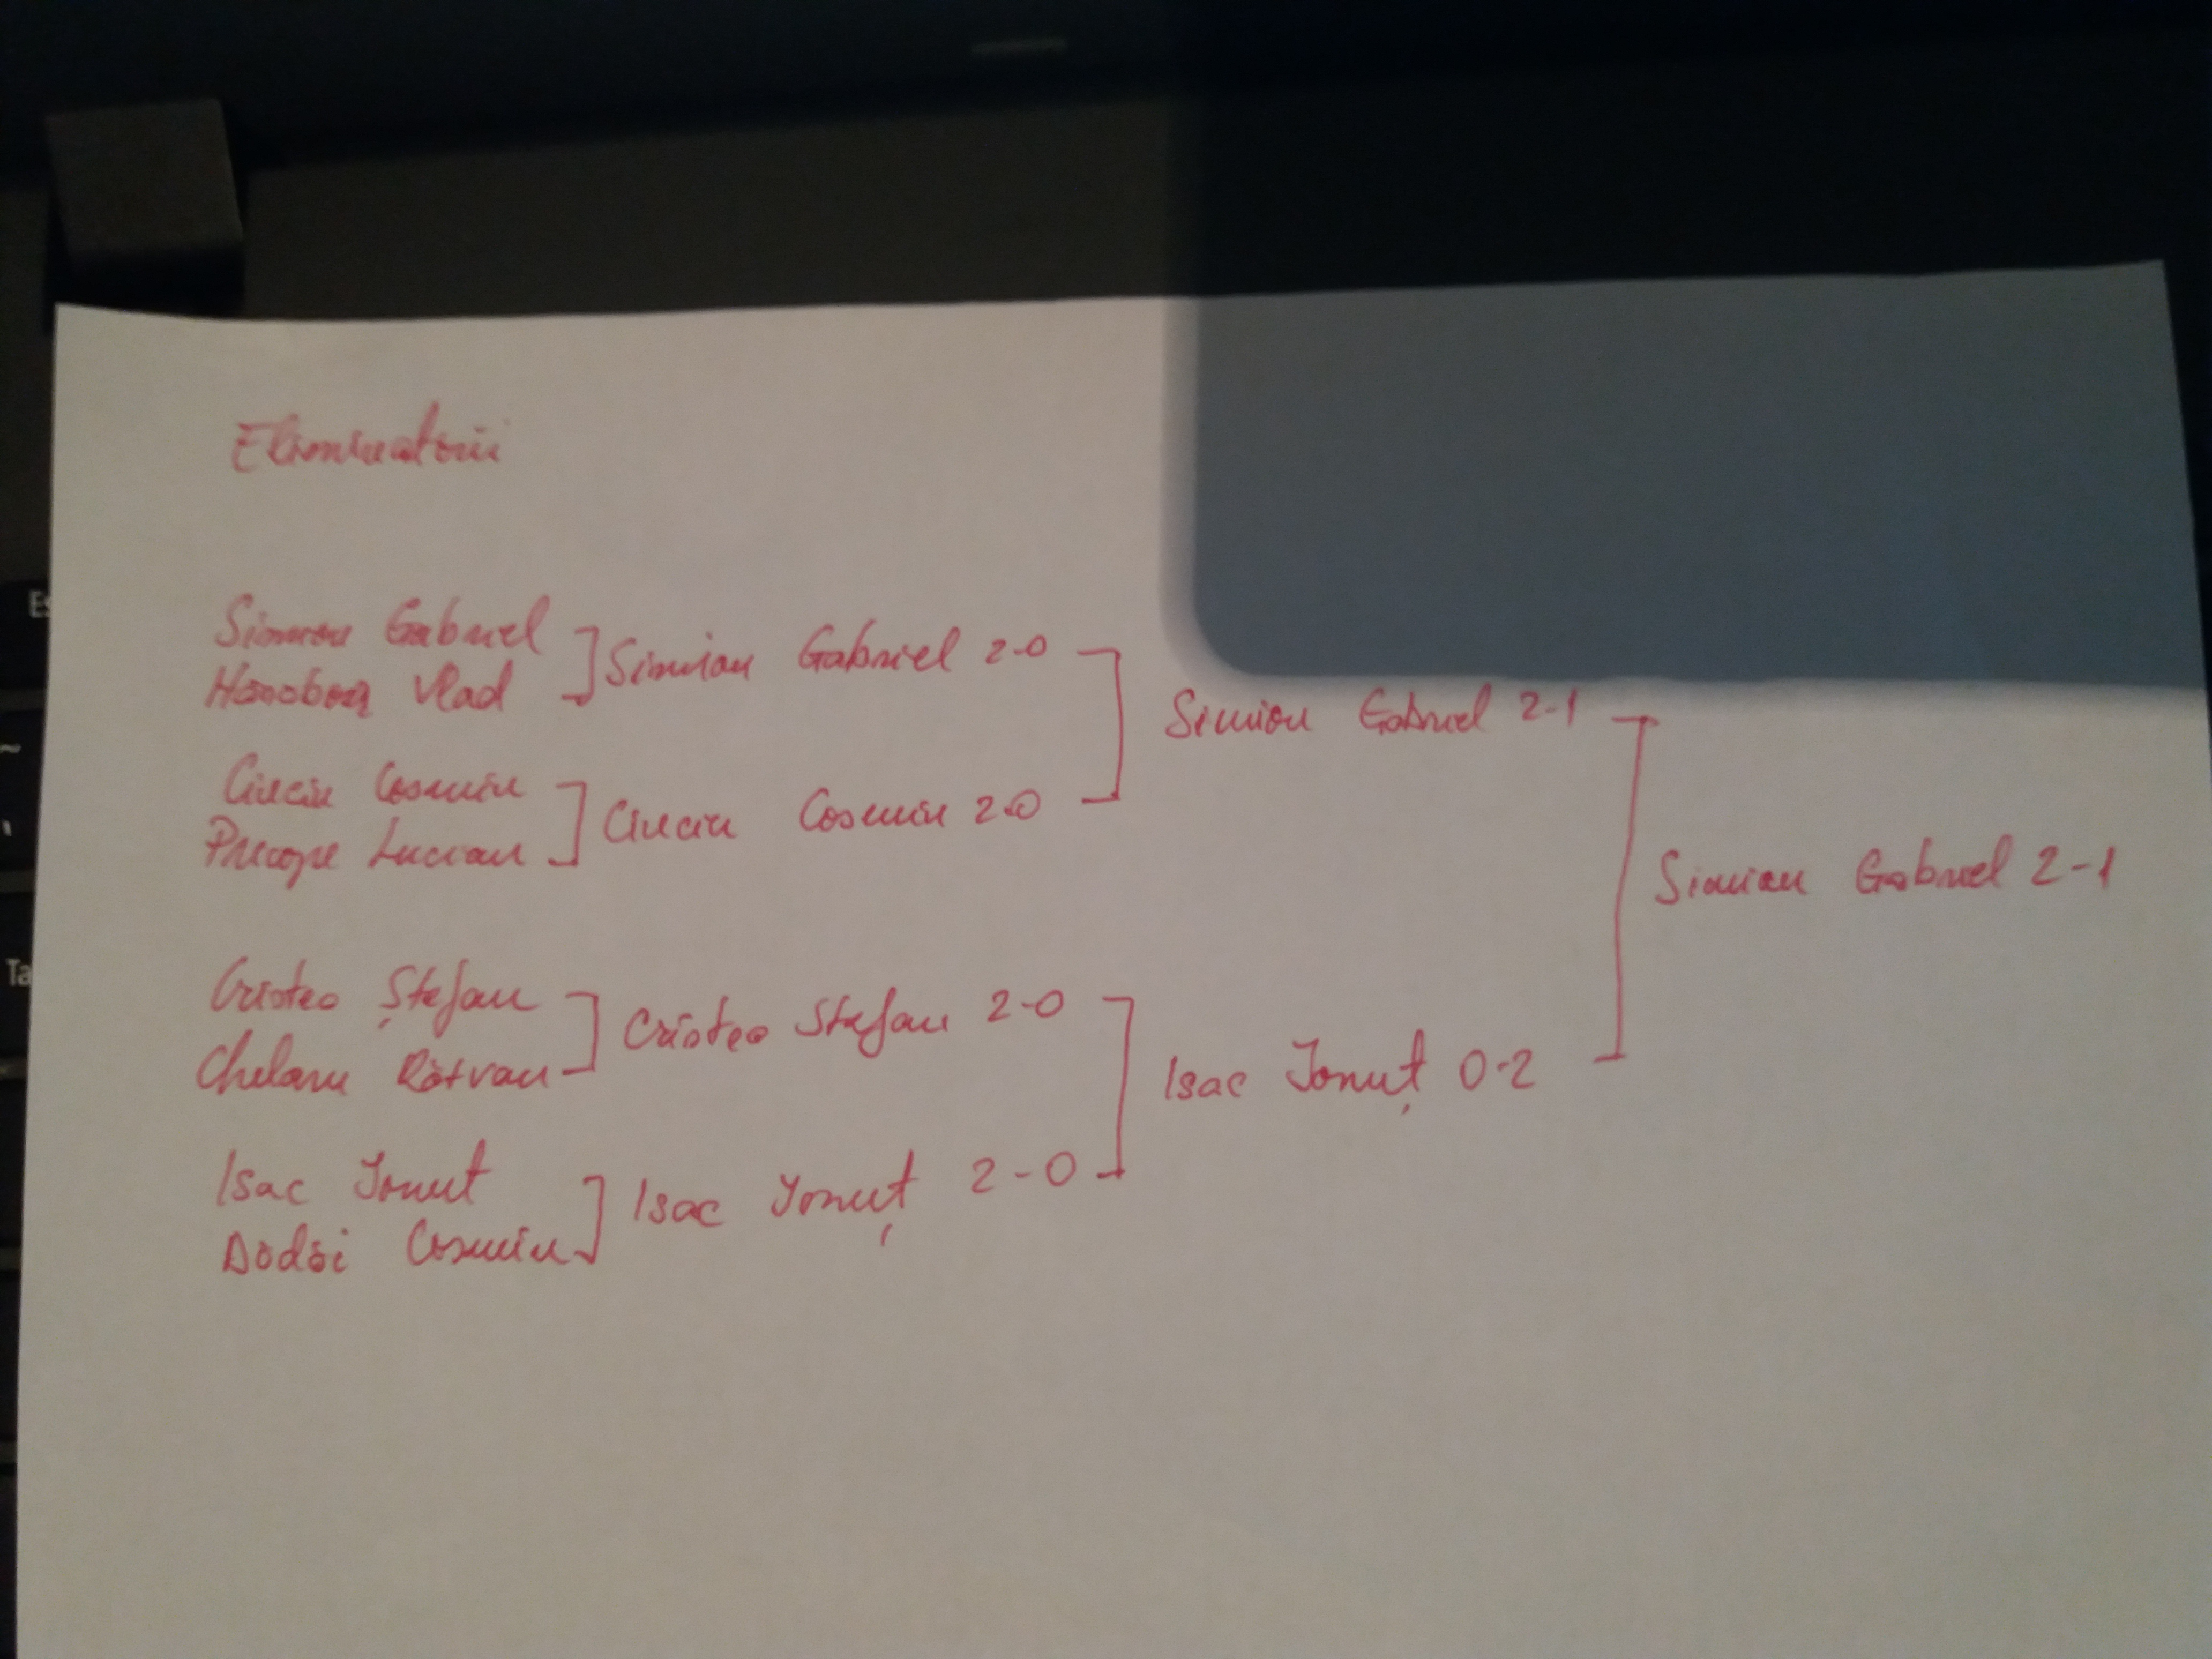 Eliminatorii
Simion Gabriel
Vlad
Simion Gabriel 2-0
Ciuciu Cosmin
Precope Lucian
Ciuciu Cosmin 2-0
Simion Gabriel 2-1
Cristea Ștefan
Chelaru Răzvan
Cristea Stefan 2-0
Isac Ionut
Dodoi Cosmin
Isac Ionuț 2-0
Isac Ionuț 0-2
Simion Gabriel 2-1
Es
~
Ta